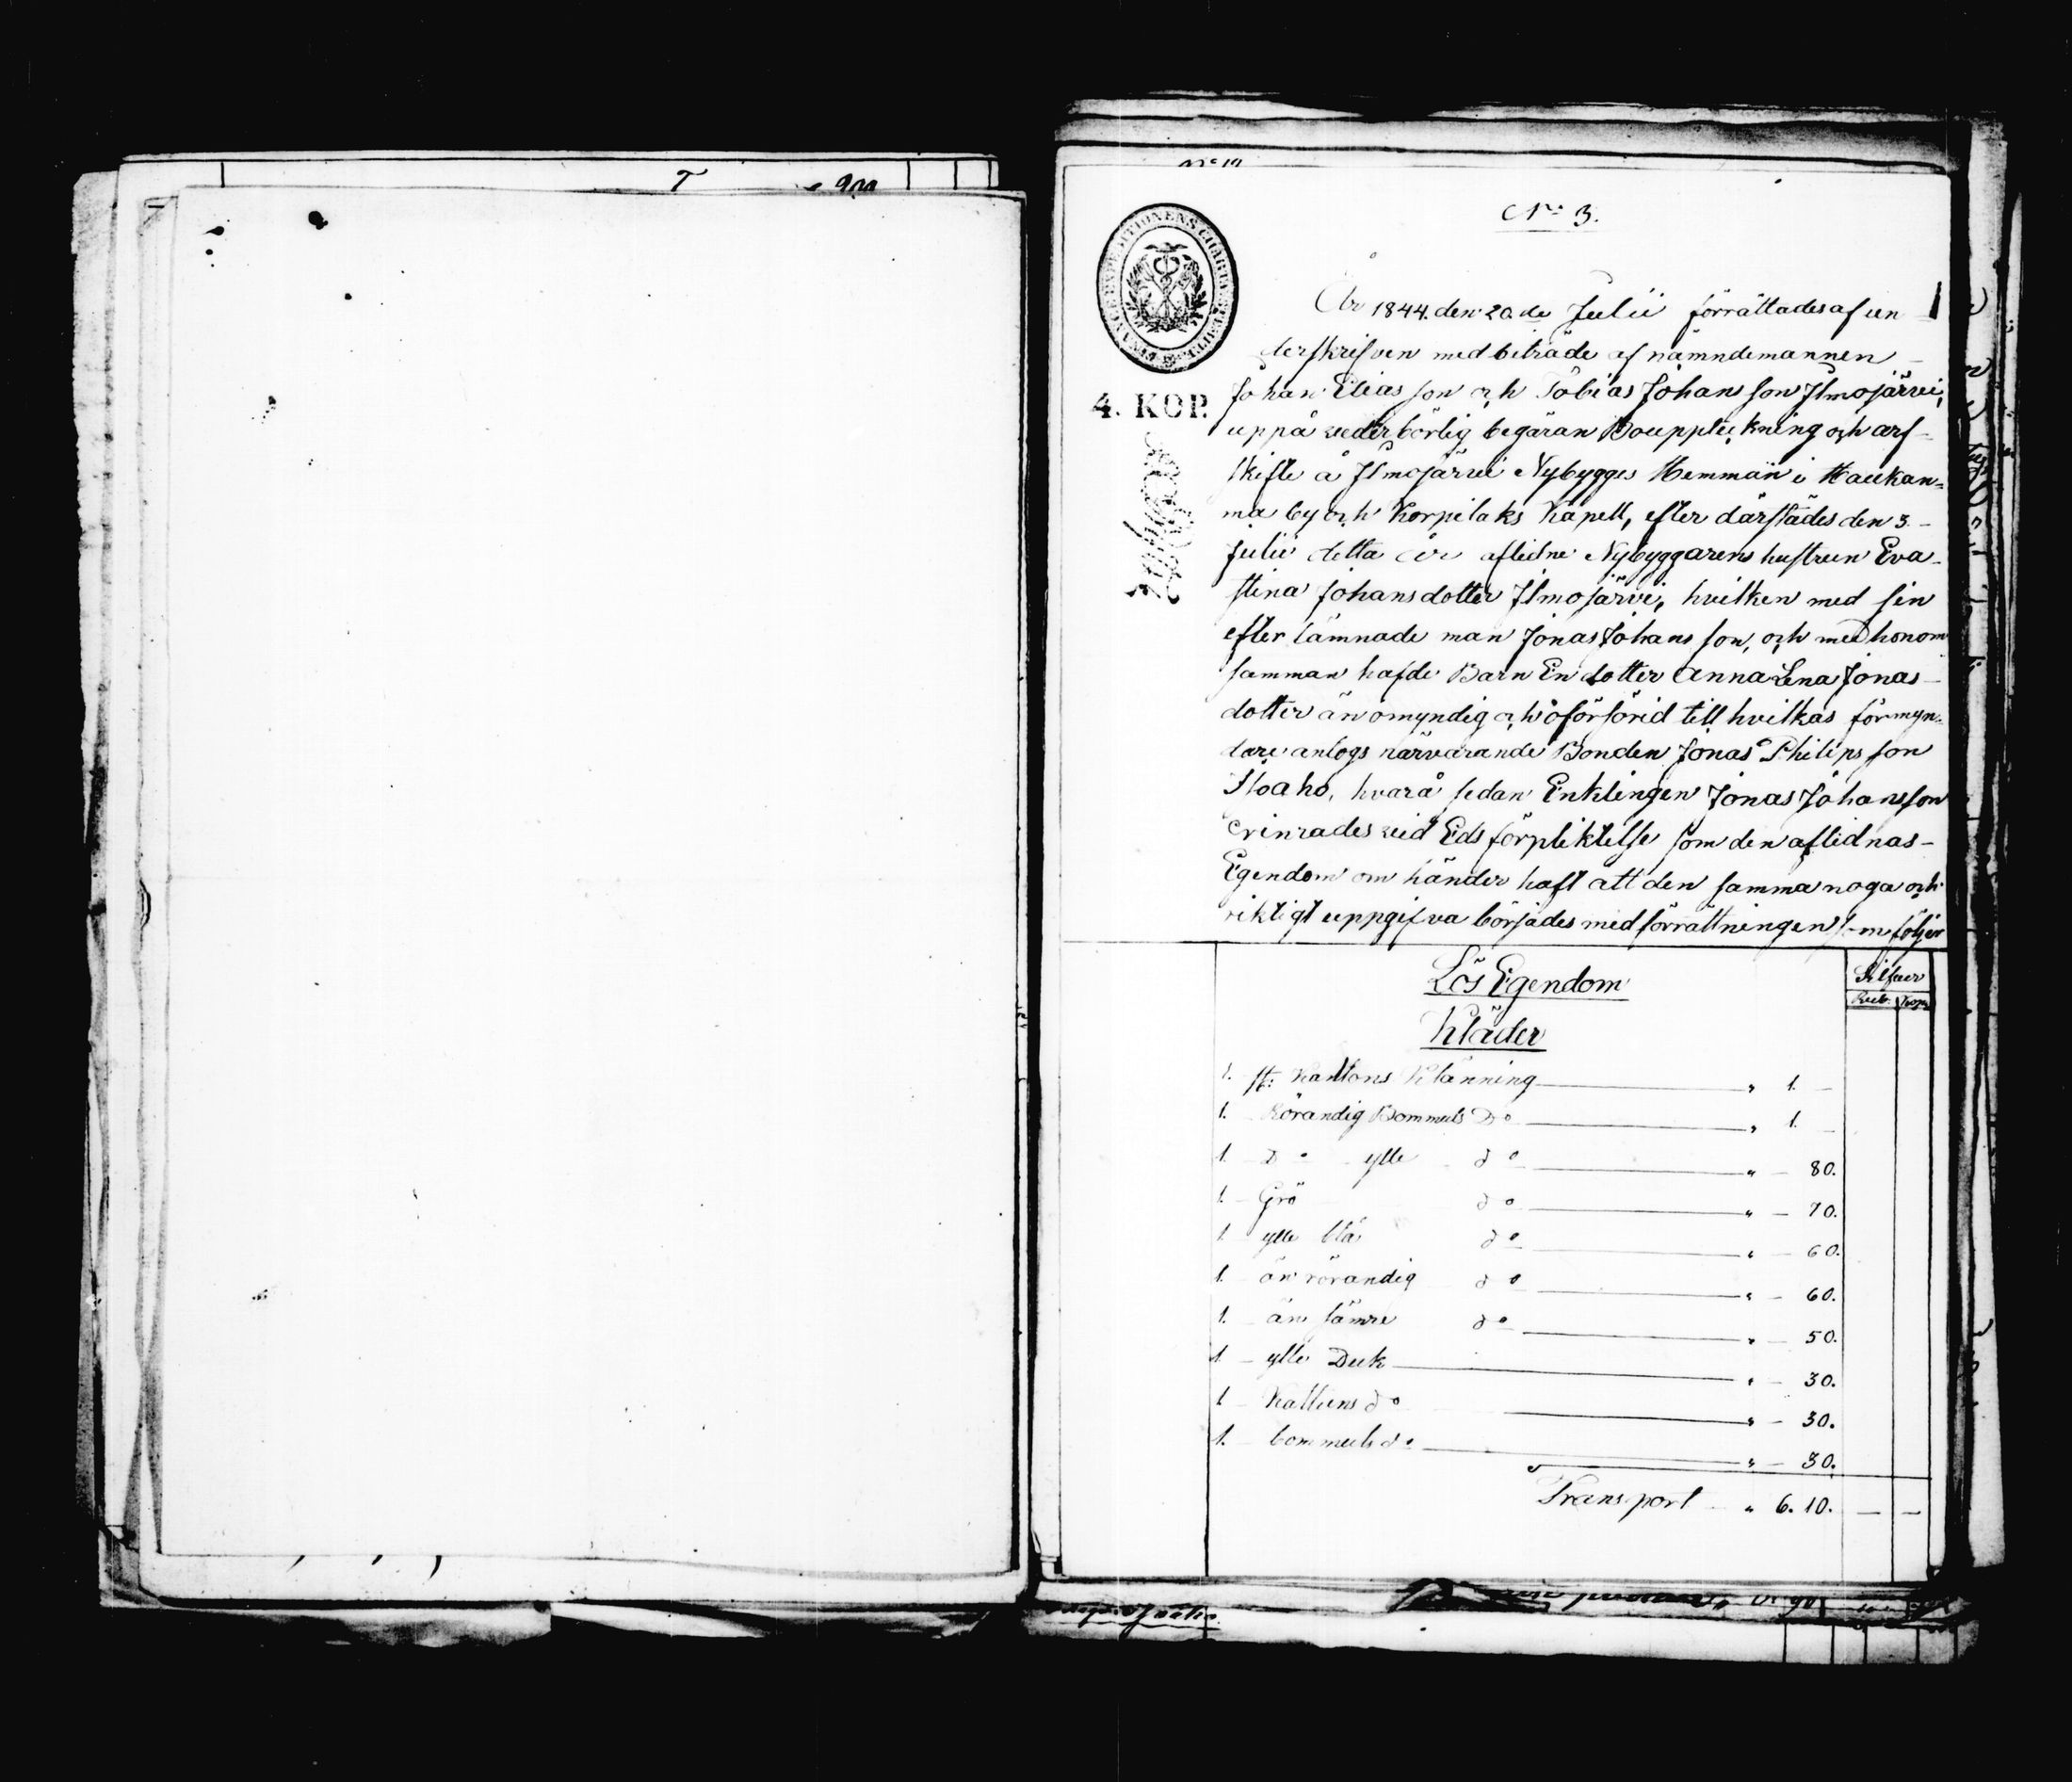 No 3.
FINANCE EXPEDITIONENS CHARTÆ STEMPEL
4. KOP.
År 1844. den 20de Julii förrättades af un
derskrifven med biträde af nämndemannen
Johan Eliasson och Tobias Johansson Ilmojärvi,
uppå vederbörlig begäran Bouppteckning och arf-
skifte å Ilmojärvi Nybygges Hemman i Haukan-
ma by och Korpilaks Kapell, efter därstädes den 3
Julii detta år aflidne Nybyggarens hustrun Eva
Stina Johansdotter Ilmojärvi, hvilken med sin
efter lämnade man Jonas Johansson, och med honom
samman hafde Barn En dotter Anna Lena Jonas
dotter än omyndig och oförsörjd till hvilkas förmyn-
dare antogs närvarande Bonden Jonas Philipsson
Isoaho, hvarå sedan Enklingen Jonas Johansson
erinrades vid Eds förpliktelse som den aflidnas
Egendom om händer haft att den samma noga och
riktigt uppgifva börjades med förrättningen som följer
Lös Egendom
Silfver
Rub. Kop.
Kläder
1. st: Kattons Klänning " 1. —
1. Rörandig Bommuls Do " 1. —
1. Do ylle do " — 80.
1 Grö do " — 70.
1 ylle blå do " — 60.
1. än rörandig do " — 60.
1. än sämre do " — 50.
1 ylle Duk " — 30.
1 Kattuns do " — 30.
1. bommuls do " — 30.
Transport " 6. 10. — —